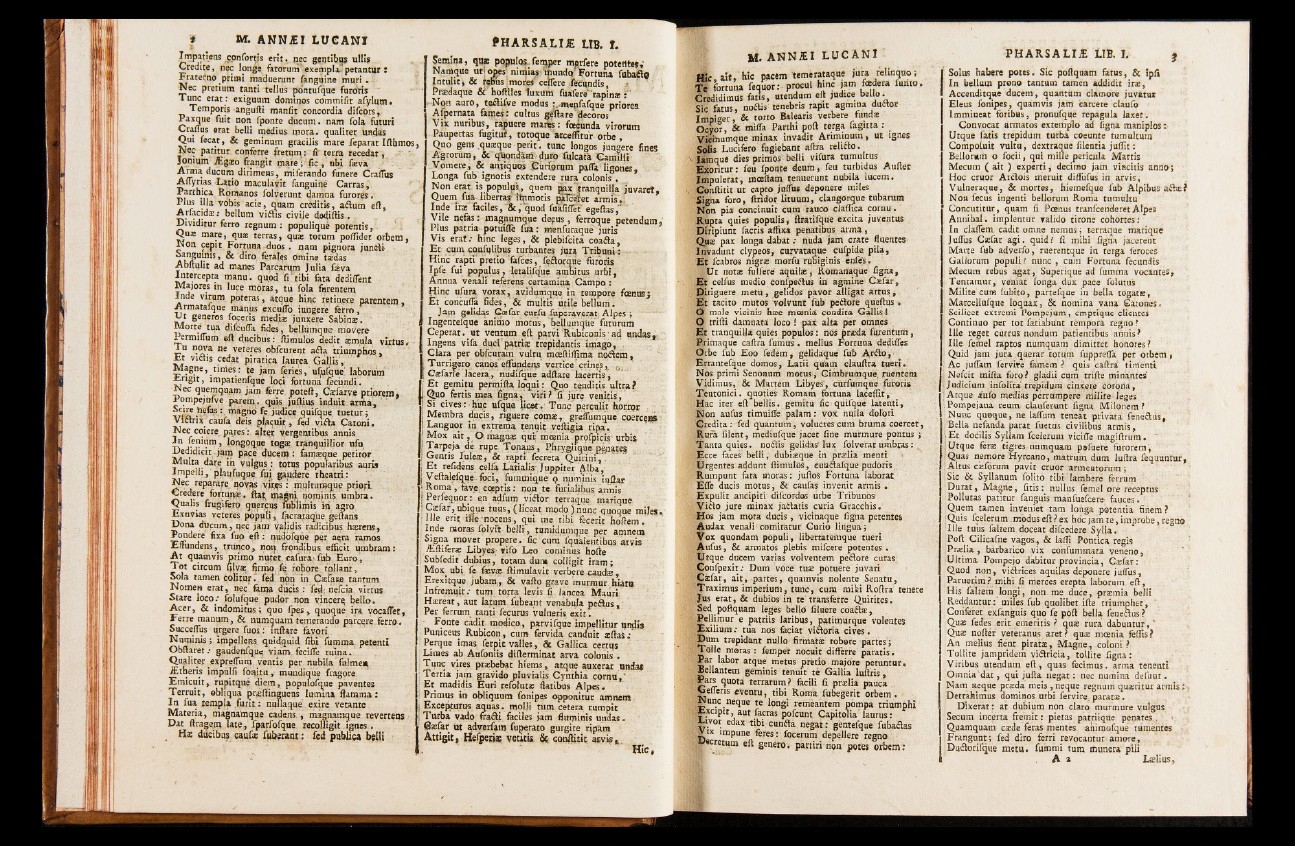 2 M. ANNÆI LUCANI
Impatiens conſortis erit. nec gentibus ullis
Credite, nec longe fatorum exempla petantur :
Fraterno primi maduerunt ſanguine muri .
Nec pretium tanti tellus pontuſque furoris
Tunc erat : exiguum dominos commiſit aſylum .
Temporis anguſti manſit concordia diſcors,
Paxque fuit non ſponte ducum. nam ſola futuri
Craſſus erat belli medius mora. qualiter undas
Qui ſecat, & geminum gracilis mare ſeparat Iſthmos,
Nec patitur conferre fretum; ſi terra recedat,
Ionium Ægæo frangit mare; ſic, ubi ſæva
Arma ducum dirimens, miſerando funere Craſſus
Aſſyrias Latio maculavit ſanguine Carras,
Parthica Romanos ſolverunt damna furores.
Plus illa vobis acie, quam creditis, actum eſt,
Arſacidæ: bellum victis civile dediſtis .
Dividitur ferro regnum : populique potentis,
Quæ mare, quæ terras, quæ totum poſſidet orbem,
Non cepit Fortuna duos . nam pignora juncti
Sanguinis, & diro ferales omine tædas
Abſtulit ad manes Parcarum Julia ſæva
Intercepta manu. quod ſi tibi fata dediſſent
Majores in luce moras, tu ſola furentem
Inde virum poteras, atque hinc retinere parentem,
Armataſque manus excuſſo jungere ferro,
Ut generos ſoceris mediæ junxere Sabinæ.
Morte tua diſcuſſa fides, bellumque movere
Permiſſum eſt ducibus: ſtimulos dedit æmula virtus.
Tu nova ne veteres obſcurent acta triumphos,
Et victis cedat piratica laurea Gallis,
Magne, times: te jam ſeries, uſuſque laborum
Erigit, impatienſque loci fortuna ſecundi .
Nec quemquam jam ferre poteſt, Cæſarve priorem,
Pompejuſve parem. quis juſtius induit arma,
Scire nefas: magno ſe judice quiſque tuetur;
Victrix cauſa deis placuit, ſed victa Catoni.
Nec coiere pares: alter vergentibus annis
In ſenium, longoque togæ tranquillior uſu
Dedidicit jam pace ducem : famæque petitor
Multa dare in vulgus : totus popularibus auris
Impelli, plauſuque ſui gaudere theatri:
Nec reparare novas vires : multumque priori
Credere fortunæ. ſtat magni nominis umbra.
Qualis frugifero quercus ſublimis in agro
Exuvias veteres populi, ſacrataque geſtans
Dona ducum, nec jam validis radicibus hærens,
Pondere fixa ſuo eſt : nudoſque per aera ramos
Effundens, trunco, non frondibus efficit umbram :
At quamvis primo nutet caſura ſub Euro,
Tot circum ſilvæ firmo ſe robore tollant,
Sola tamen colitur. ſed non in Cæſare tantum
Nomen erat, nec fama ducis : ſed neſcia virtus
Stare loco: ſoluſque pudor non vincere bello.
Acer, & indomitus; quo ſpes, quoque ira vocaſſet,
Ferre manum, & numquam temerando parcere ferro.
Succeſſus urgere ſuos: inſtare favori
Numinis; impellens quidquid ſibi ſumma petenti
Obſtaret : gaudenſque viam feciſſe ruina.
Qualiter expreſſum ventis per nubila fulmen
Ætheris impulſi ſonitu, mundique fragore
Emicuit, rupitque diem, populoſque paventes
Terruit, obliqua præſtingens lumina flamma :
In ſua templa furit: nullaque exire vetante
Materia, magnamque cadens, magnamque revertens
Dat ſtragem late, ſparſoſque recolligit ignes .
Hæ ducibus cauſæ ſuberant: ſed publica belli
PHARSALIÆ LIB. I.
Semina, quæ populos ſemper merſere potentes.
Namque ut opes nimias mundo Fortuna ſubacto
Intulit, & rebus mores ceſſere ſecundis,
Prædaque & hoſtiles luxum ſuaſere rapinæ :
Non auro, tectiſve modus : menſaſque priores
Aſpernata fames: cultus geſtare decoros
Vix nuribus, rapuere mares: fœcunda virorum
Paupertas fugitur, totoque arceſſitur orbe,
Quo gens quæque perit. tunc longos jungere fines
Agrorum, & quondam duro ſulcata Camilli
Vomere, & antiquos Curiorum paſſa ligones,
Longa ſub ignotis extendere rura colonis .
Non erat is populus, quem pax tranquilla juvaret,
Quem ſua libertas immotis paſceret armis.
Inde iræ faciles, &, quod ſuaſiſſet egeſtas,
Vile nefas: magnumque decus, ferroque petendum,
Plus patria potuiſſe ſua: menſuraque juris
Vis erat: hinc leges, & plebiſcita coacta,
Et cum conſulibus turbantes jura Tribuni:
Hinc rapti pretio faſces, ſectorque furoris
Ipſe ſui populus, letaliſque ambitus urbi,
Annua venali referens certamina Campo :
Hinc uſura vorax, avidumque in tempore fœnus;
Et concuſſa fides, & multis utile bellum.
Jam gelidas Cæſar curſu ſuperaverat Alpes ;
Ingenteſque animo motus, bellumque futurum
Ceperat. ut ventum eſt parvi Rubiconis ad undas,
Ingens viſa duci patriæ trepidantis imago,
Clara per obſcuram vultu mœſtiſſima noctem,
Turrigero canos effundens vertice crines,
Cæſarie lacera, nudiſque adſtare lacertis,
Et gemitu permiſta loqui: Quo tenditis ultra?
Quo fertis mea ſigna, viri? ſi jure venitis,
Si cives: huc uſque licet. Tunc perculit horror
Membra ducis, riguere comæ, greſſumque coercens
Languor in extrema tenuit veſtigia ripa.
Mox ait, O magnæ qui mœnia proſpicis urbis
Tarpeja de rupe Tonans, Phrygiique penates
Gentis Juleæ, & rapti ſecreta Quirini,
Et reſidens celſa Latialis Juppiter Alba,
Veſtaleſque foci, ſummique o numinis inſtar
Roma, fave cœptis: non te furialibus armis
Perſequor: en adſum victor terraque marique
Cæſar, ubique tuus, (liceat modo) nunc quoque miles.
Ille erit ille nocens, qui me tibi fecerit hoſtem.
Inde moras ſolvit belli, tumidumque per amnem
Signa movet propere. ſic cum ſqualentibus arvis
Æſtiferæ Libyes viſo Leo cominus hoſte
Subſedit dubius, totam dum colligit iram;
Mox ubi ſe ſævæ ſtimulavit verbere caudæ,
Erexitque jubam, & vaſto grave murmur hiatu
Infremuit: tum torta levis ſi lancea Mauri
Hæreat, aut latum ſubeant venabula pectus,
Per ferrum tanti ſecurus vulneris exit.
Fonte cadit modico, parviſque impellitur undis
Puniceus Rubicon, cum fervida canduit æſtas:
Perque imas ſerpit valles, & Gallica certus
Limes ab Auſoniis diſterminat arva colonis .
Tunc vires præbebat hiems, atque auxerat undas
Tertia jam gravido pluvialis Cynthia cornu,
Et madidis Euri reſolutæ flatibus Alpes .
Primus in obliquum ſonipes opponitur amnem
Excepturus aquas. molli tum cetera rumpit
Turba vado fracti faciles jam fluminis undas.
Cæſar ut adverſam ſuperato gurgite ripam
Attigit, Heſperiæ vetitis & conſtitit arvis,
Hic,
M. ANNÆI LUCANI
Hic, ait, hic pacem temerataque jura relinquo;
Te fortuna ſequor: procul hinc jam fœdera ſunto.
Credidimus fatis, utendum eſt judice bello.
Sic fatus, noctis tenebris rapit agmina ductor
Impiger, & torto Balearis verbere fundæ
Ocyor, & miſſa Parthi poſt terga ſagitta :
Vicinumque minax invadit Ariminum, ut ignes
Solis Lucifero fugiebant aſtra relicto.
Iamque dies primos belli viſura tumultus
Exoritur: ſeu ſponte deum, ſeu turbidus Auſter
Impulerat, mœſtam tenuerunt nubila lucem.
Conſtitit ut capto juſſus deponere miles
Signa foro, ſtridor lituum, clangorque tubarum
Non pia concinuit cum rauco claſſica cornu.
Rupta quies populis, ſtratiſque excita juventus
Diripiunt ſacris affixa penatibus arma,
Quæ pax longa dabat: nuda jam crate fluentes
Invadunt clypeos, curvataque cuſpide pila,
Et ſcabros nigræ morſu rubiginis enſes.
Ut notæ fulſere aquilæ, Romanaque ſigna,
Et celſus medio conſpectus in agmine Cæſar,
Diriguere metu, gelidos pavor alligat artus,
Et tacito mutos volvunt ſub pectore queſtus .
O male vicinis hæc mœnia condita Gallis!
O triſti damnata loco! pax alta per omnes
Et tranquilla quies populos: nos præda furentum,
Primaque caſtra ſumus. melius Fortuna dediſſes
Orbe ſub Eoo ſedem, gelidaque ſub Arcto,
Erranteſque domos, Latii quam clauſtra tueri.
Nos primi Senonum motus, Cimbrumque ruentem
Vidimus, & Martem Libyes, curſumque furoris
Teutonici. quoties Romam fortuna laceſſit,
Hac iter eſt bellis. gemitu ſic quiſque latenti,
Non auſus timuiſſe palam: vox nulla dolori
Credita: ſed quantum, volucres cum bruma coercet,
Rura ſilent, mediuſque jacet ſine murmure pontus ;
Tanta quies. noctis gelidas lux ſolverat umbras:
Ecce faces belli, dubiæque in prælia menti
Urgentes addunt ſtimulos, cunctaſque pudoris
Rumpunt fata moras: juſtos Fortuna laborat
Eſſe ducis motus, & cauſas invenit armis .
Expulit ancipiti diſcordes urbe Tribunos
Victo jure minax jactatis curia Gracchis.
Hos jam mota ducis, vicinaque ſigna petentes
Audax venali comitatur Curio lingua;
Vox quondam populi, libertatemque tueri
Auſus, & armatos plebis miſcere potentes .
Utque ducem varias volventem pectore curas
Conſpexit: Dum voce tuæ potuere juvari
Cæſar, ait, partes, quamvis nolente Senatu,
Traximus imperium, tunc, cum mihi Roſtra tenere
Jus erat, & dubios in te transferre Quirites.
Sed poſtquam leges bello ſiluere coactæ;
Pellimur e patriis laribus, patimurque volentes
Exilium: tua nos faciat victoria cives.
Dum trepidant nullo firmatæ robore partes;
Tolle moras: ſemper nocuit differre paratis.
Par labor atque metus pretio majore petuntur.
Bellantem geminis tenuit te Gallia luſtris,
Pars quota terrarum? facili ſi prælia pauca
Geſſeris eventu, tibi Roma ſubegerit orbem.
Nunc neque te longi remeantem pompa triumphi
Excipit, aut ſacras poſcunt Capitolia laurus:
Livor edax tibi cuncta negat: genteſque ſubactas
Vix impune feres: ſocerum depellere regno
Decretum eſt genero. partiri non potes orbem:
PHARSALIÆ LIB. I. 3
Solus habere potes. Sic poſtquam fatus, & ipſi
In bellum prono tantum tamen addidit iræ,
Accenditque ducem, quantum clamore juvatur
Eleus ſonipes, quamvis jam carcere clauſo
Immineat foribus, pronuſque repagula laxet.
Convocat armatos extemplo ad ſigna maniplos:
Utque ſatis trepidum turba coeunte tumultum
Compoſuit vultu, dextraque ſilentia juſſit:
Bellorum o ſocii, qui mille pericula Martis
Mecum (ait) experti, decimo jam vincitis anno;
Hoc cruor Arctois meruit diffuſus in arvis,
Vulneraque, & mortes, hiemeſque ſub Alpibus actæ?
Non ſecus ingenti bellorum Roma tumultu
Concutitur, quam ſi Pœnus tranſcenderet Alpes
Annibal. implentur valido tirone cohortes:
In claſſem cadit omne nemus; terraque marique
Juſſus Cæſar agi. quid? ſi mihi ſigna jacerent
Marte ſub adverſo, ruerentque in terga feroces
Gallorum populi? nunc, cum Fortuna ſecundis
Mecum rebus agat, Superique ad ſumma vocantes,
Tentamur, veniat longa dux pace ſolutus
Milite cum ſubito, parteſque in bella togatæ,
Marcelluſque loquax, & nomina vana Catones.
Scilicet extremi Pompejum, emptique clientes
Continuo per tot ſatiabunt tempora regno?
Ille reget currus nondum patientibus annis?
Ille ſemel raptos numquam dimittet honores?
Quid jam jura querar totum ſuppreſſa per orbem,
Ac juſſam ſervire famem? quis caſtra timenti
Neſcit miſta foro? gladii cum triſte minantes
Judicium inſolita trepidum cinxere corona,
Atque auſo medias perrumpere milite leges
Pompejana reum clauſerunt ſigna Milonem?
Nunc quoque, ne laſſum teneat privata ſenectus,
Bella nefanda parat ſuetus civilibus armis,
Et docilis Syllam ſcelerum viciſſe magiſtrum.
Utque feræ tigres numquam poſuere furorem,
Quas nemore Hyrcano, matrum dum luſtra ſequuntur,
Altus cæſorum pavit cruor armentorum;
Sic & Syllanum ſolito tibi lambere ferrum
Durat, Magne, ſitis: nullus ſemel ore receptus
Pollutas patitur ſanguis manſueſcere fauces.
Quem tamen inveniet tam longa potentia finem?
Quis ſcelerum modus eſt? ex hoc jam te, improbe, regno
Ille tuus ſaltem doceat diſcedere Sylla.
Poſt Cilicaſne vagos, & laſſi Pontica regis
Prælia, barbarico vix conſummata veneno,
Ultima Pompejo dabitur provincia, Cæſar:
Quod non, victrices aquilas deponere juſſus,
Paruerim? mihi ſi merces erepta laborum eſt,
His ſaltem longi, non me duce, præmia belli
Reddantur: miles ſub quolibet iſte triumphet.
Conferet exſanguis quo ſe poſt bella ſenectus?
Quæ ſedes erit emeritis? quæ rura dabuntur,
Quæ noſter veteranus aret? quæ mœnia feſſis?
An melius fient piratæ, Magne, coloni?
Tollite jampridem victricia, tollite ſigna:
Viribus utendum eſt, quas fecimus. arma tenenti
Omnia dat, qui juſta negat: nec numina deſunt.
Nam neque præda meis, neque regnum quæritur armis:
Detrahimus dominos urbi ſervire paratæ.
Dixerat: at dubium non claro murmure vulgus
Secum incerta fremit: pietas patriique penates
Quamquam cæde feras mentes, animoſque tumentes
Frangunt; ſed diro ferri revocantur amore,
Ductoriſque metu. ſummi tum munera pili
A 2 Lælius,